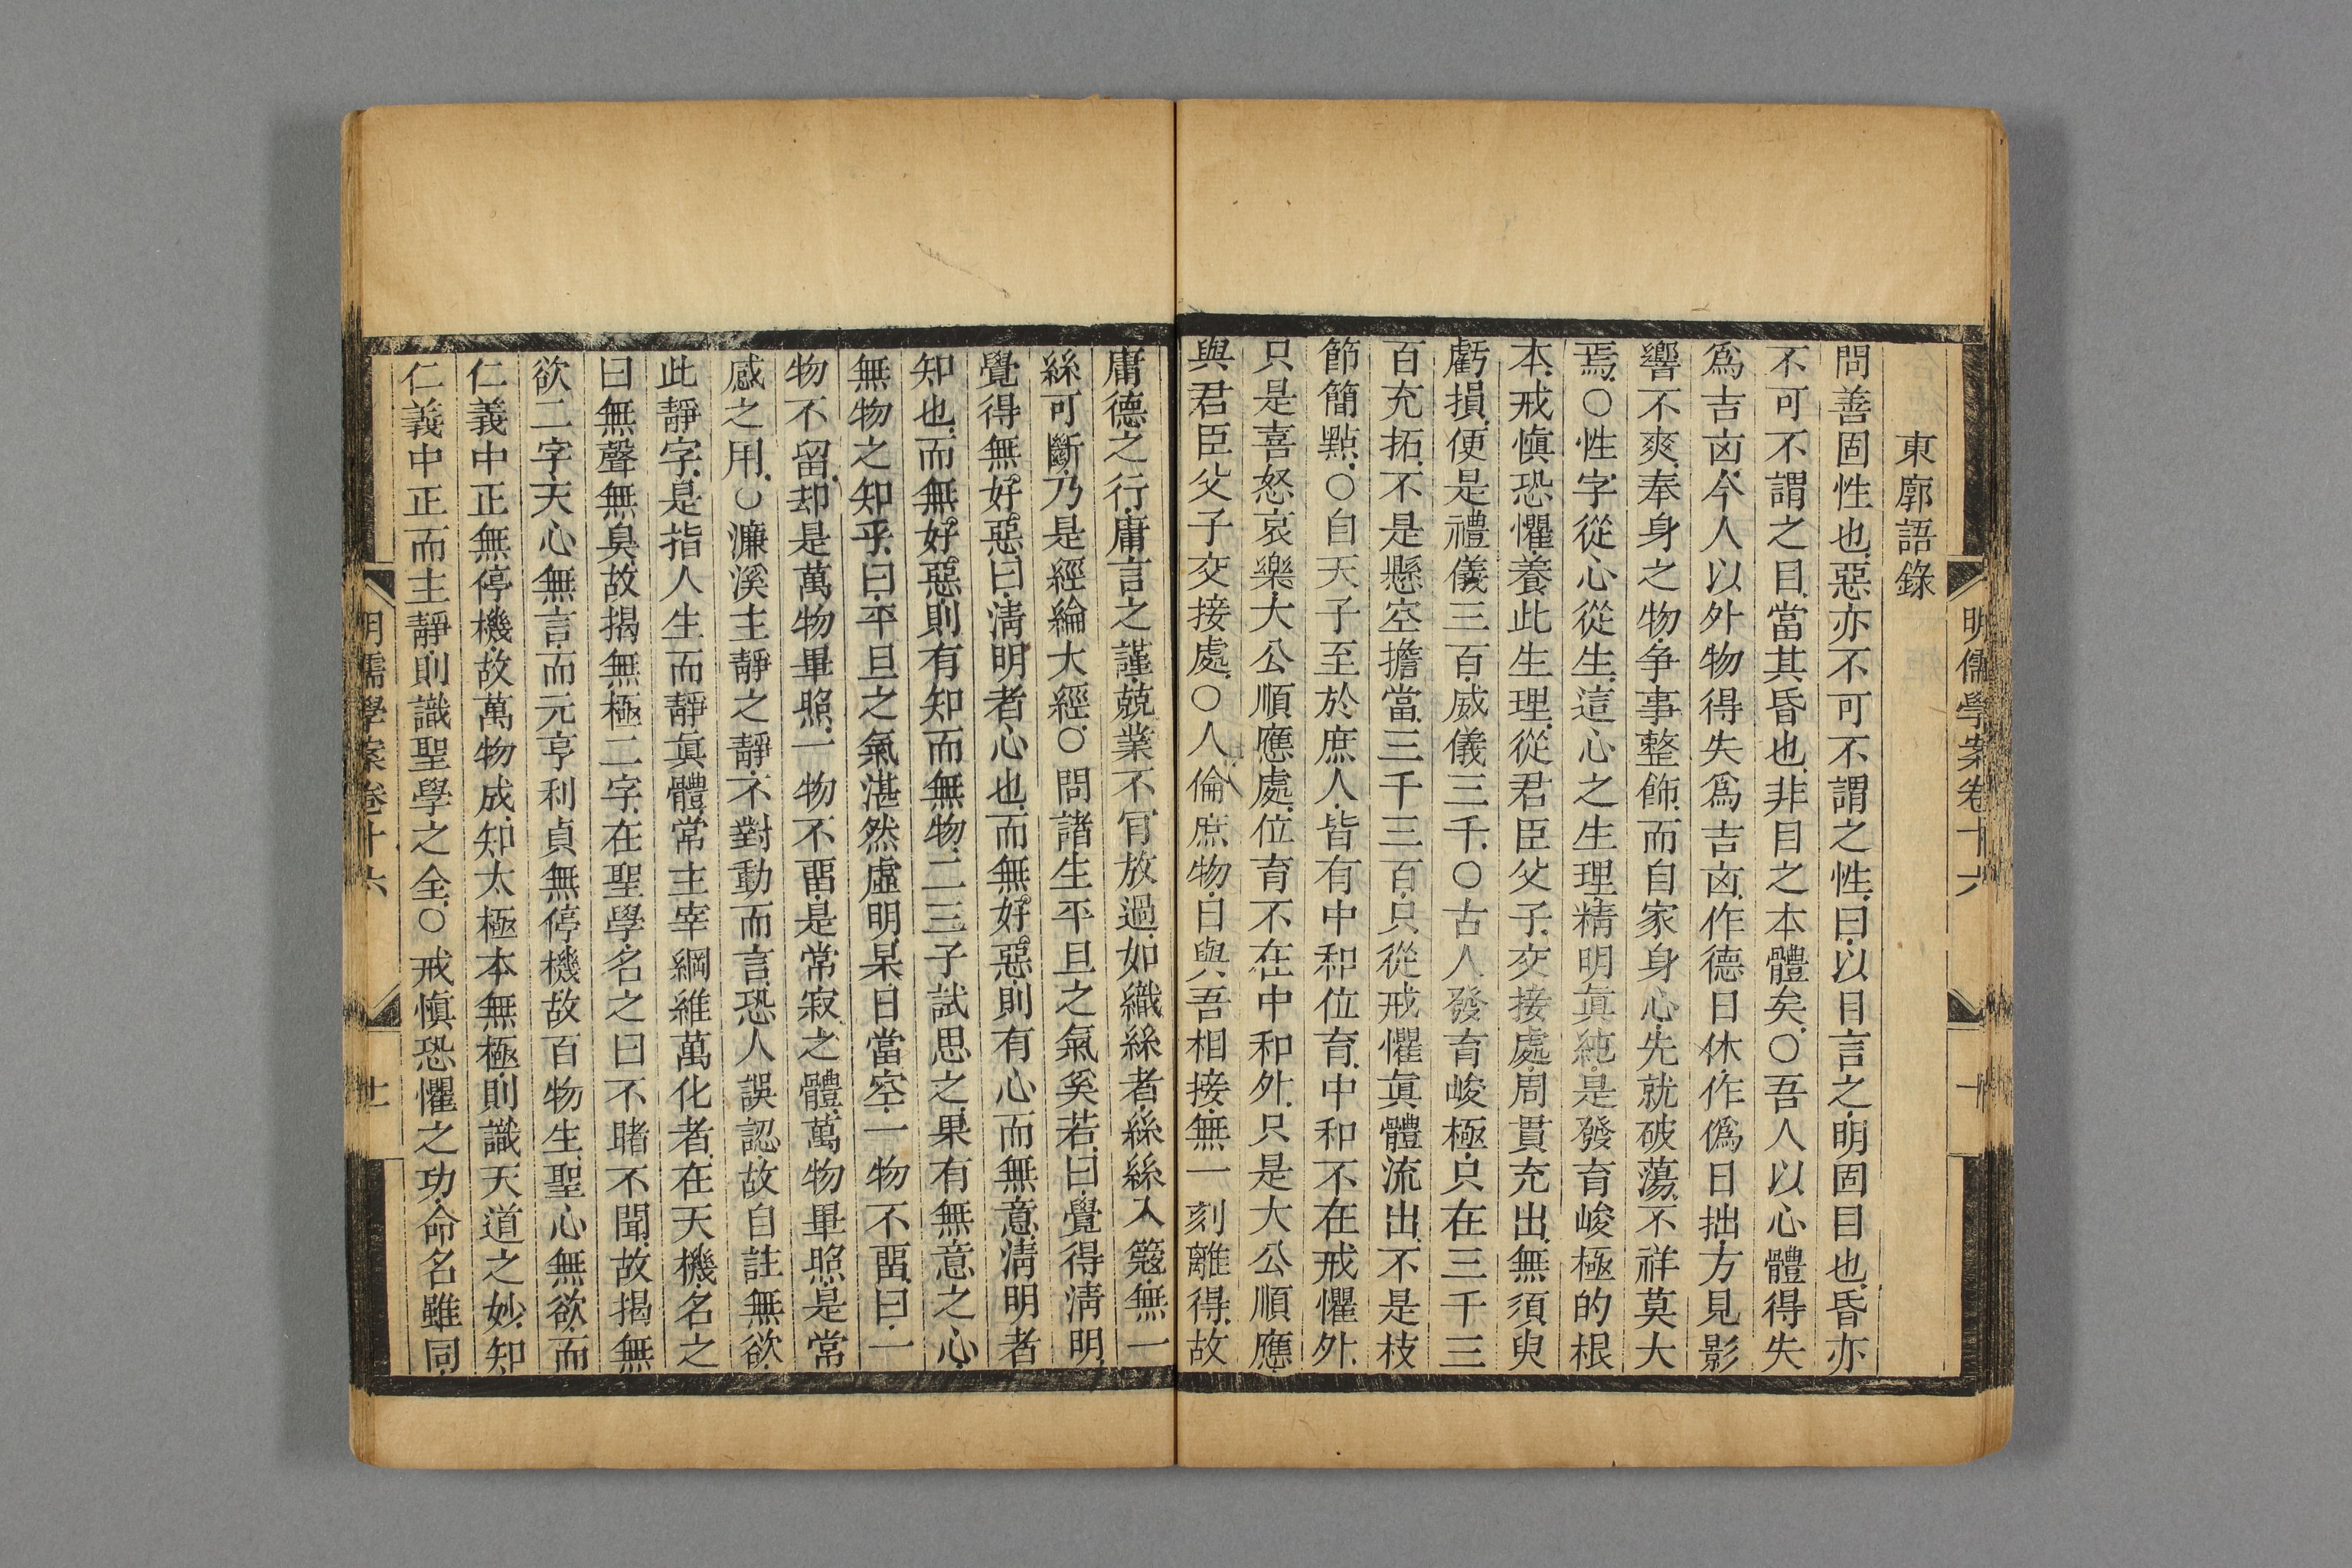 明儒學案卷十六
十
東廓語錄
問善固性也惡亦不可不謂之性曰以目言之明固目也昏亦
不可不謂之目當其昏也非目之本體矣○吾人以心體得失
爲吉凶今人以外物得失爲吉凶作德日休作僞日拙方見影
響不爽奉身之物争事整飾而自家身心先就破蕩不祥莫大
焉○性字從心從生這心之生理精明眞純是發育峻極的根
本戒愼恐懼養此生理從君臣父子交接處周貫充出無須臾
虧損便是禮儀三百威儀三千○古人發育峻極只在三千三
百充拓不是懸空擔當三千三百只從戒懼眞體流出不是枝
節簡點○自天子至於庶人皆有中和位育中和不在戒懼外
只是喜怒哀樂大公順應處位育不在中和外只是大公順應
與君臣父子交接處○人倫庶物日與吾相接無一刻離得故
庸德之行庸言之謹兢業不肎放過如織絲者絲絲入簆無一
絲可斷乃是經綸大經○問諸生平旦之氣奚若曰覺得淸明
覺得無好惡曰淸明者心也而無好惡則有心而無意淸明者
知也而無好惡則有知而無物二三子試思之果有無意之心
無物之知乎曰平旦之氣湛然虛明杲日當空一物不畱曰一
物不留却是萬物畢照一物不畱是常寂之體萬物畢照是常
感之用○濂溪主靜之靜不對動而言恐人誤認故自註無欲
此靜字是指人生而靜眞體常主宰綱維萬化者在天機名之
曰無聲無臭故揭無極二字在聖學名之曰不睹不聞故揭無
欲二字天心無言而元亨利貞無停機故百物生聖心無欲而
仁義中正無停機故萬物成知太極本無極則識天道之妙知
仁義中正而主靜則識聖學之全○戒愼恐懼之功命名雖同
明儒學案卷十六